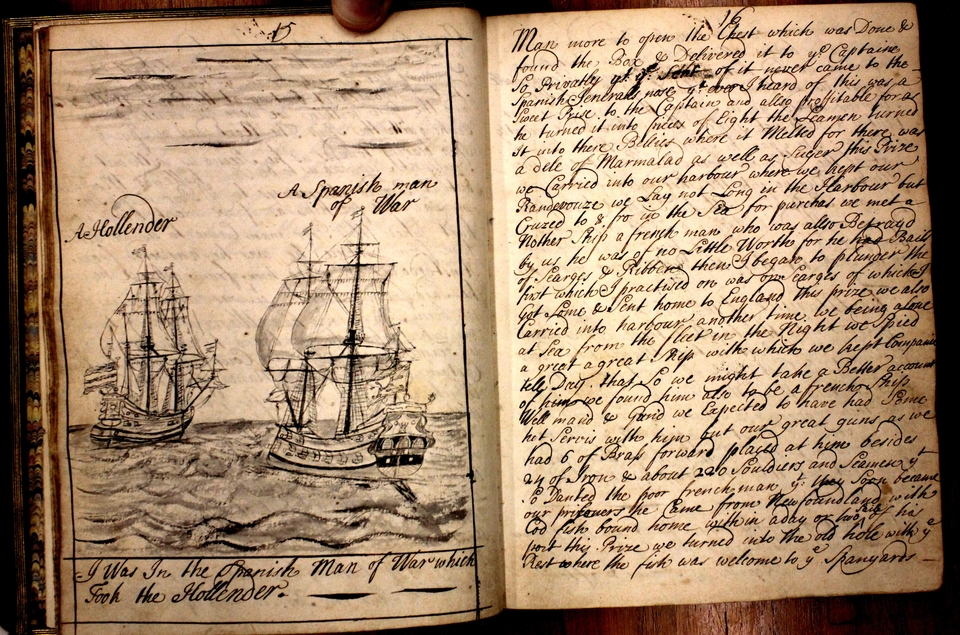 15
A Spanish man
of War
A Hollender
I Was In the Spanish Man of War which
Took the Hollender.
16
Man more to open the Chest which was Done &
found the Box & Delivered it to yᵉ Captaine
So Privatly yᵗ yᵉ of it never came to the
Spanish Generalls nose yᵗ ever I heard of this was a
Sweet Prise to the Captain and allso proffitable for as
he turned it into Pieces of Eight the Seamen turned
It into there Bellies where it Melted for there was
a dele of Marmalad as well as Suger this Prize
we Carried into our harbour where we kept our
Randevouze we Lay not Long in the Harbour but
Cruzed to & fro in the Sea for purchas we met a
Nother Ship a french man who was allso Betrayd
by us he was of no Little Worth for he had Bails
of Searges & Ribbens then I began to plunder the
first which I practised on was own Searges of which I
got some & Sent home to England this prize we also
Carried into harbour another time we being alone
at Sea from the fleet in the Night we Spied
a great a great Ship with which we kept Companie
tell Day that So we might take a Better account
of him we found him also to be a french Ship
Well mand & gund we Expected to have had Some
hot Servis with him but our great guns as we
had 6 of Brass forward played at him besides
24 of Iron & about 220 Souldiers and Seamen yᵗ
So Danted the poor french man yᵗ they Soon became
our prisoners he Came from Newfoundland with
Cod fish bound home within a day or two Sail of his
port this Prize we turned into the old hole with yᵉ
Rest where the fish was welcome to yᵉ Spanyards